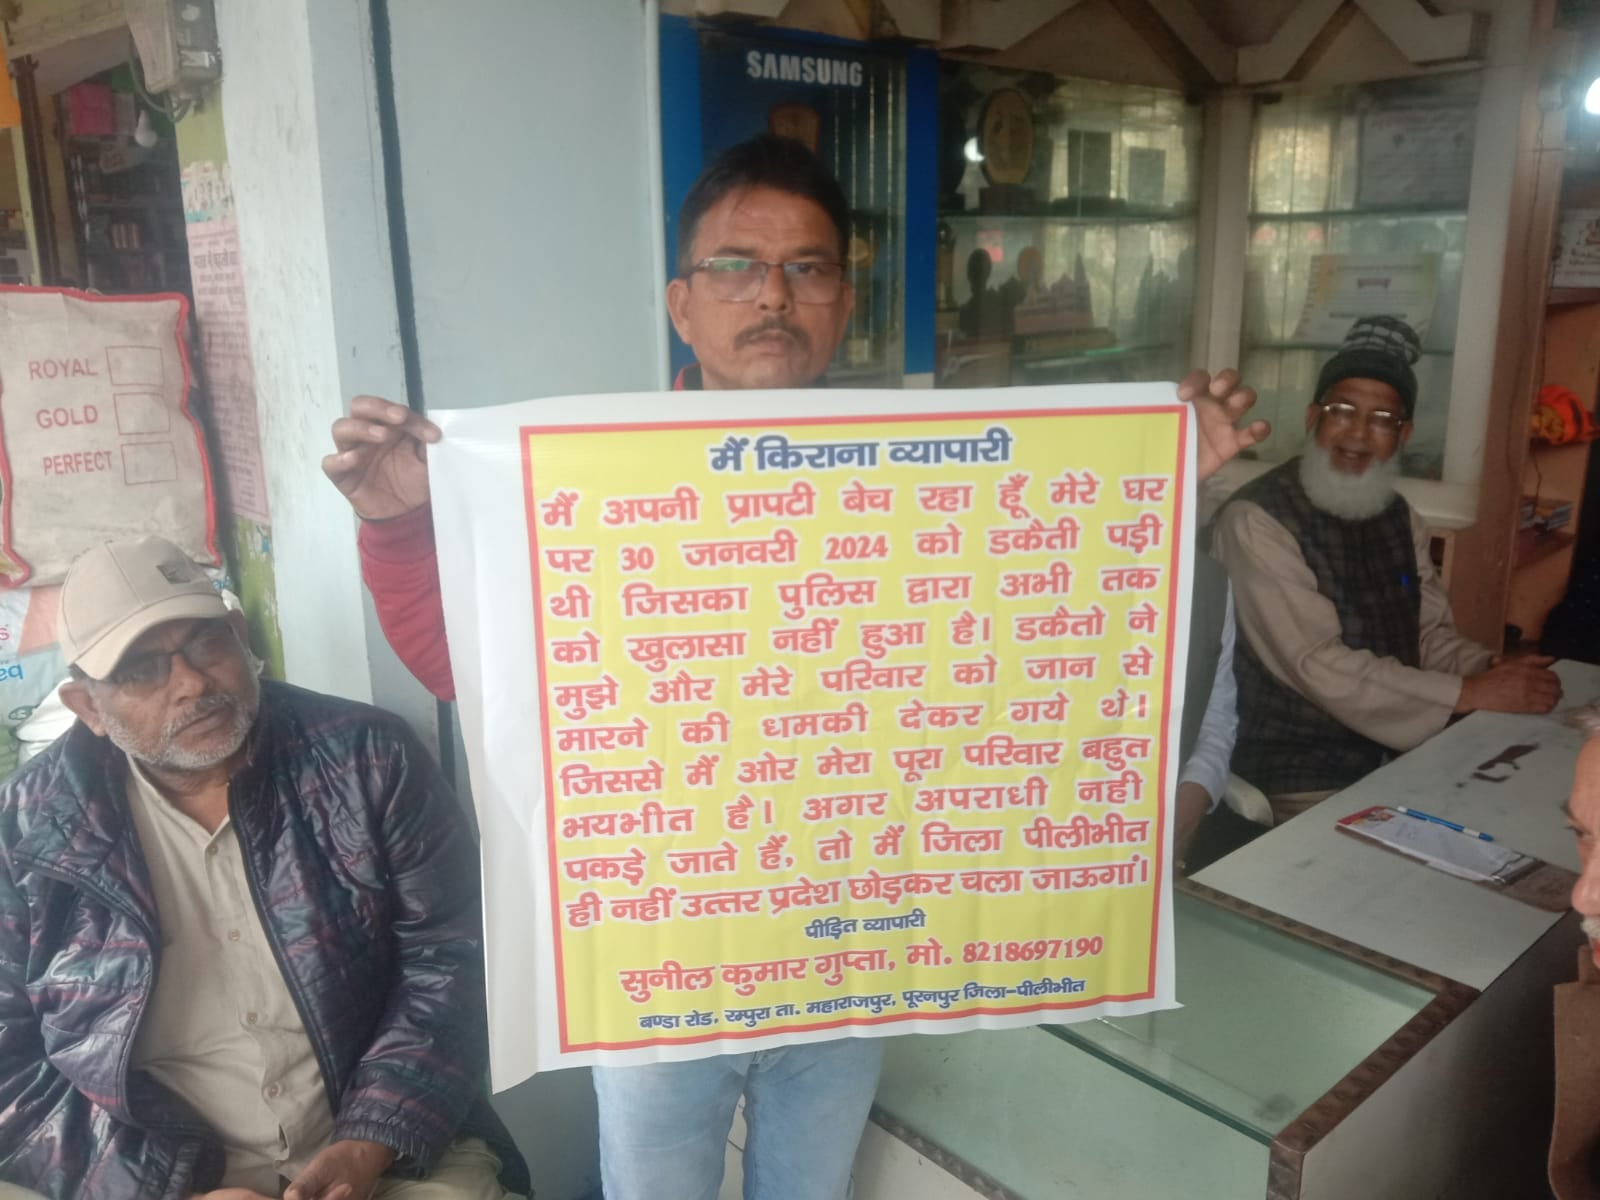 SAMSUNG
ROYAL
GOLD
PERFECT
मैं किराना व्यापारी
मैं अपनी प्रापटी बेच रहा हूँ मेरे घर
पर 30 जनवरी 2024 को डकैती पड़ी
थी जिसका पुलिस द्वारा अभी तक
को खुलासा नहीं हुआ है। डकैतो ने
मुझे और मेरे परिवार को जान से
मारने की धमकी देकर गये थे।
जिससे मैं ओर मेरा पूरा परिवार बहुत
भयभीत है। अगर अपराधी नही
पकड़े जाते हैं, तो मैं जिला पीलीभीत
ही नहीं उत्तर प्रदेश छोड़कर चला जाऊगां।
पीड़ित व्यापारी
सुनील कुमार गुप्ता, मो. 8218697190
बण्डा रोड, रम्पुरा ता. महाराजपुर, पूरनपुर जिला-पीलीभीत